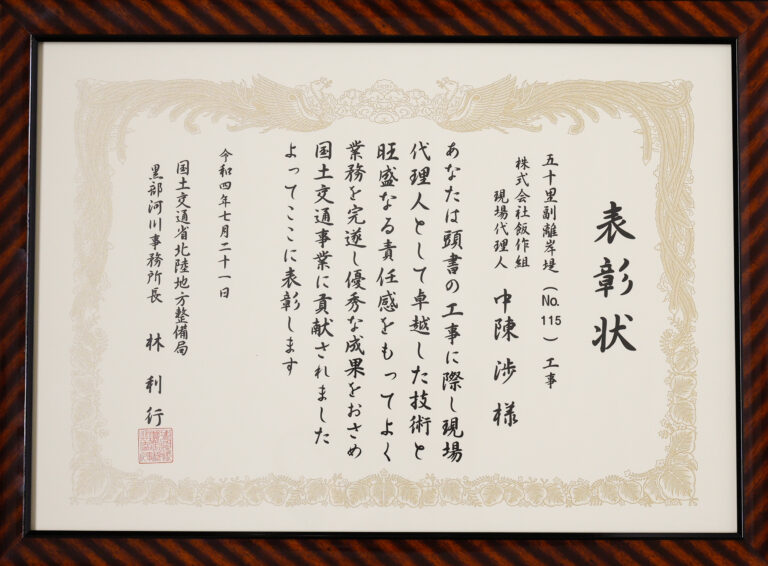 表彰状
五十里副離岸堤（No.115）工事
株式会社飯作組
現場代理人 中陳渉様
あなたは頭書の工事に際し現場
代理人として卓越した技術と
旺盛なる責任感をもってよく
業務を完遂し優秀な成果をおさめ
国土交通事業に貢献されました
よってここに表彰します
令和四年七月二十一日
国土交通省北陸地方整備局
黒部河川事務所長 林利行